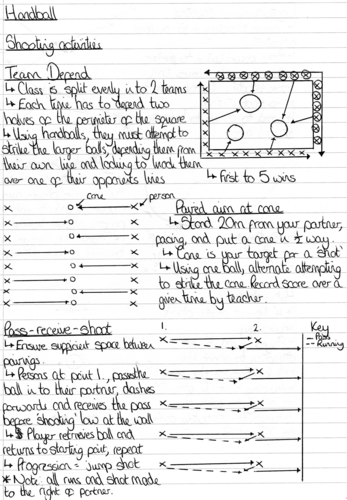 Handball
Shooting activities
Team Defend
↳ Class is split evenly into 2 teams
↳ Each time has to defend two
halves of the perimiter of the square
↳ Using handballs, they must attempt to
strike the larger balls, defending them from
their own line and looking to knock them
over one of their opponents lines
↳ First to 5 wins
cone
person
Paired aim at cone
↳ Stand 20m from your partner,
pacing, and put a cone in ½ way.
↳ 'Cone is your target for a shot'
↳ Using one ball, alternate attempting
to strike the cone. Record score over a
given time by teacher.
Pass-receive-shoot
↳ Ensure sufficient space between
pairings.
↳ Persons at point 1., passes the
ball in to their partner, dashes
forwards and receives the pass
before 'shooting' low at the wall
↳ Player retrieves ball and
returns to starting point, repeat
↳ Progression = Jump shot
* Note: all runs and shot made
to the right of partner.
1.
2.
Key
Pass
Running